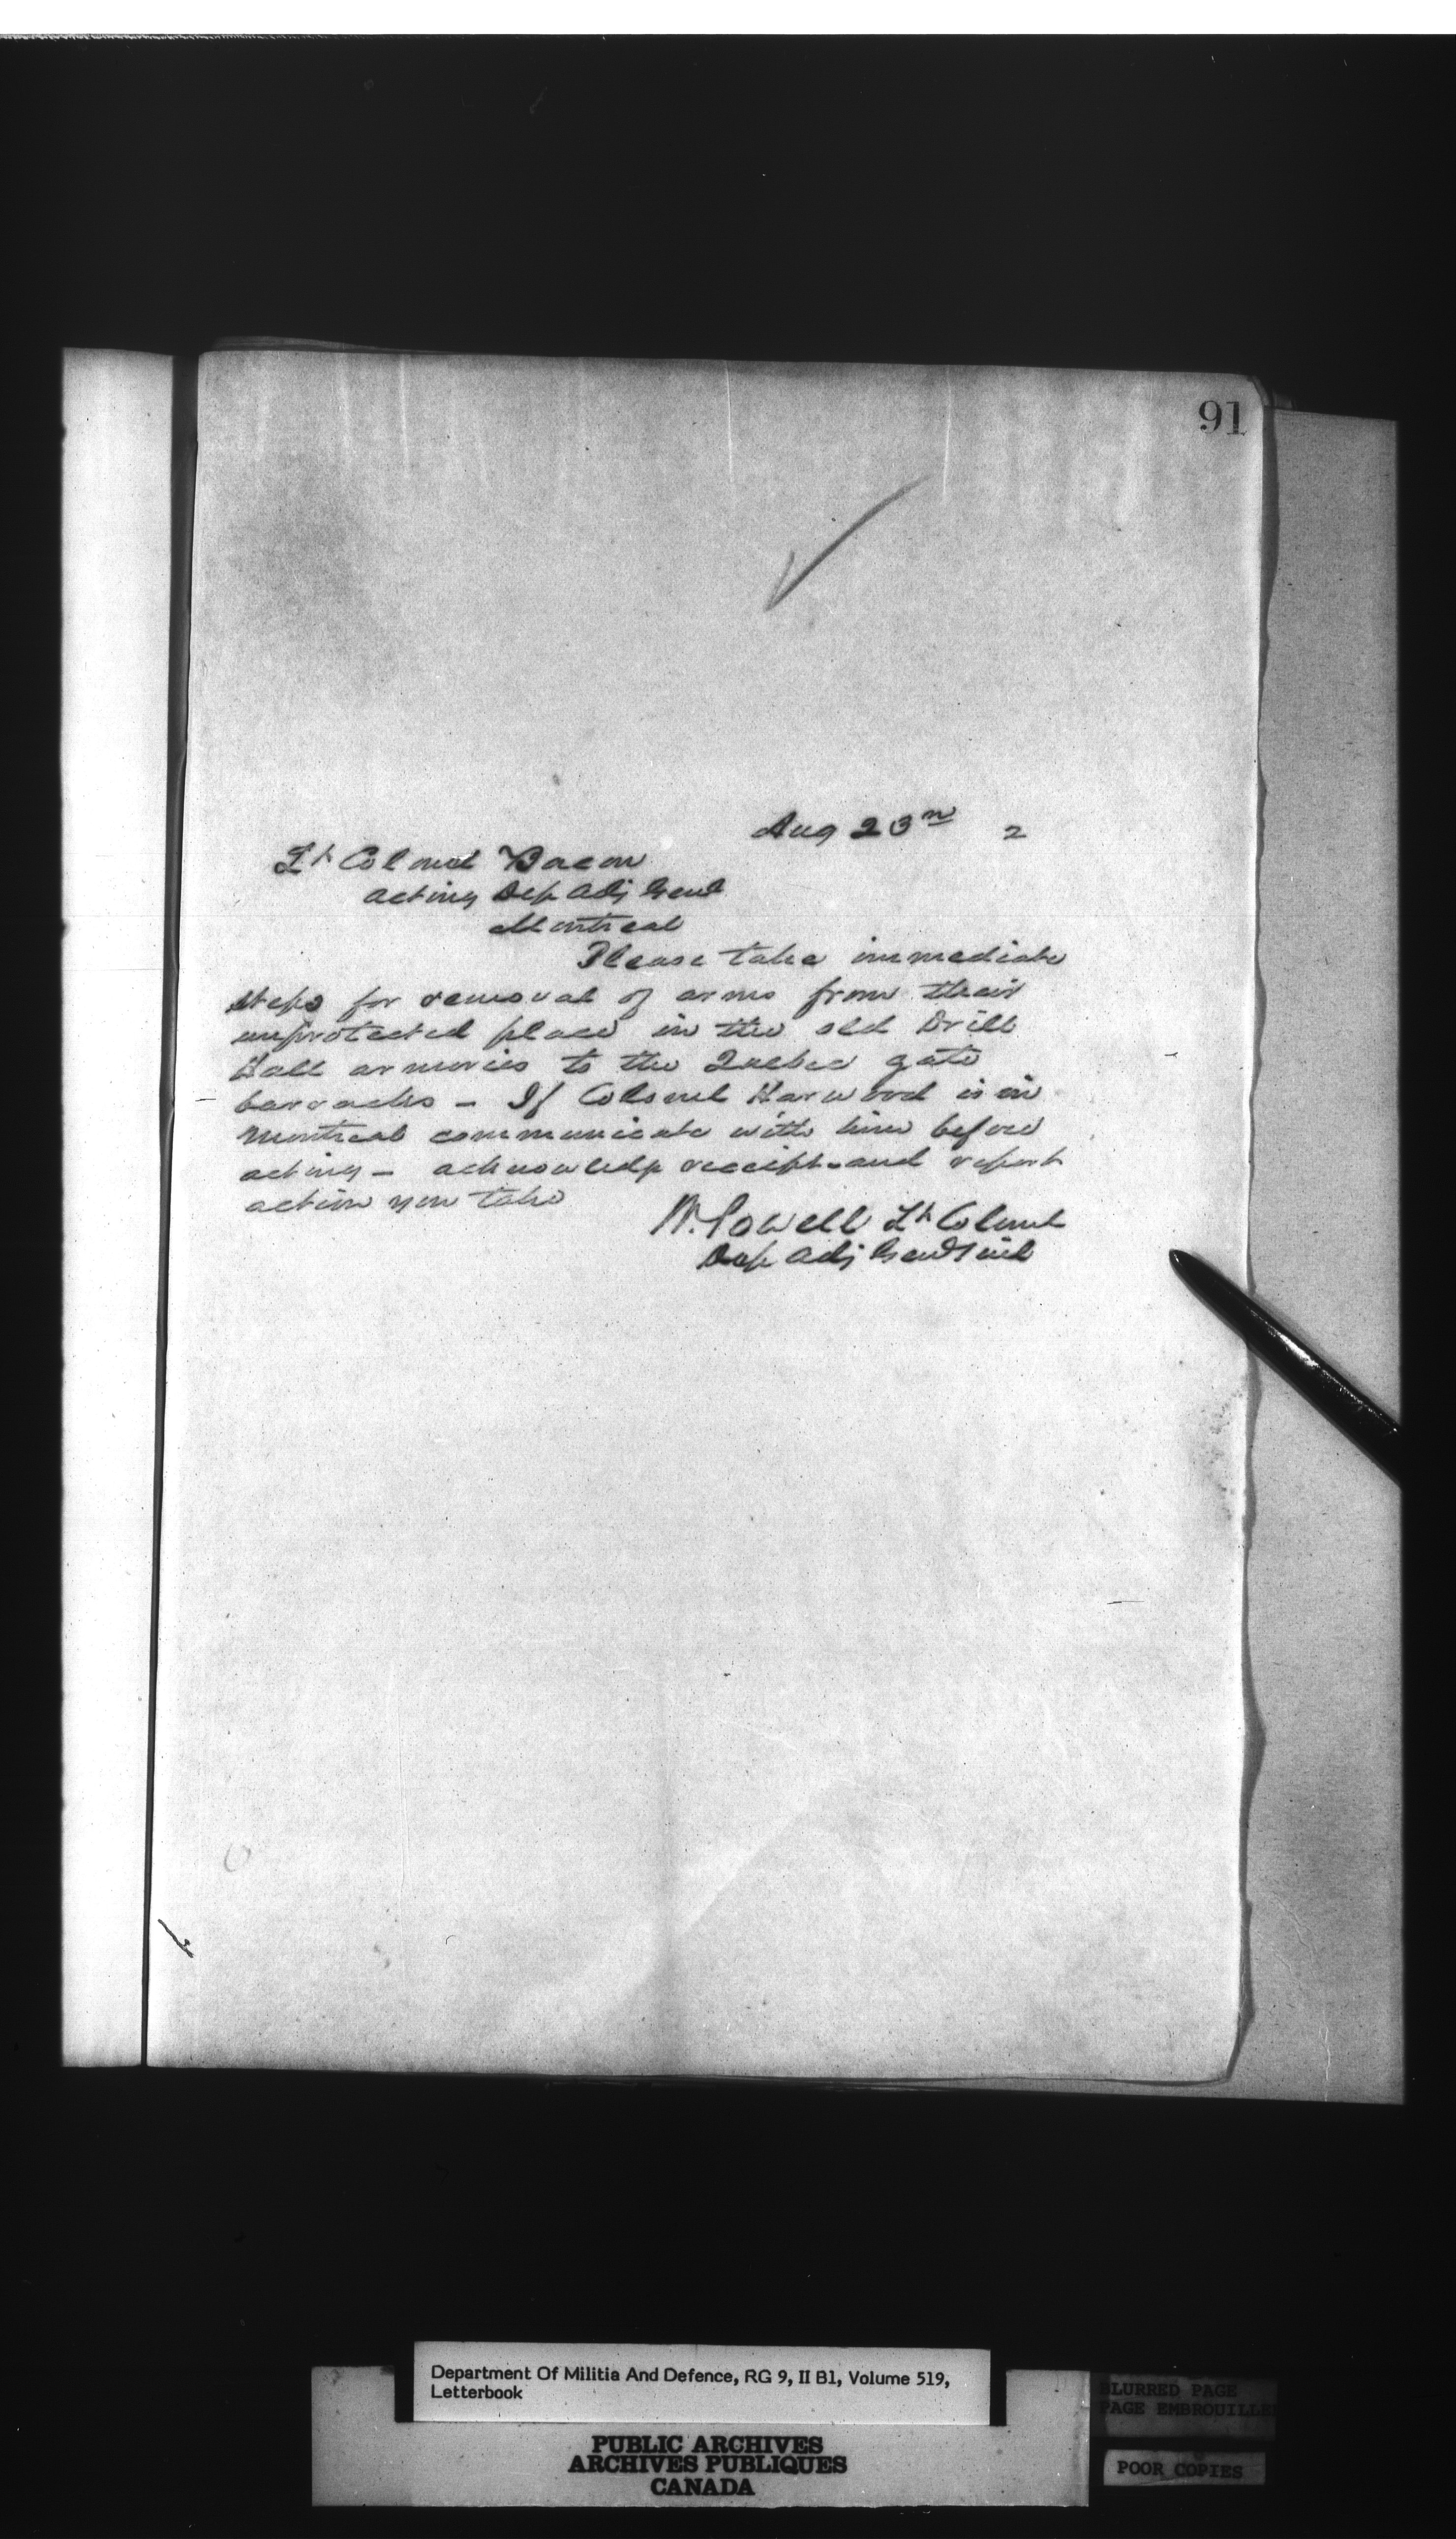 91
Aug 23rd 2
Lt Colonel Bacon
Acting Dep Adj Genl
Montreal
Please take immediate
steps for removal of arms from their
unprotected place in the old Drill
Hall armories to the Quebec gate
barracks - If Colonel Harwood is in
Montreal communicate with him before
acting - acknowledge receipt and report
action you take
W. Powell Lt Colonel
Dep Adj Genl
Department Of Militia And Defence, RG 9, II B1, Volume 519,
Letterbook
PUBLIC ARCHIVES
ARCHIVES PUBLIQUES
CANADA
BLURRED PAGE
PAGE EMBROUILLE
POOR COPIES